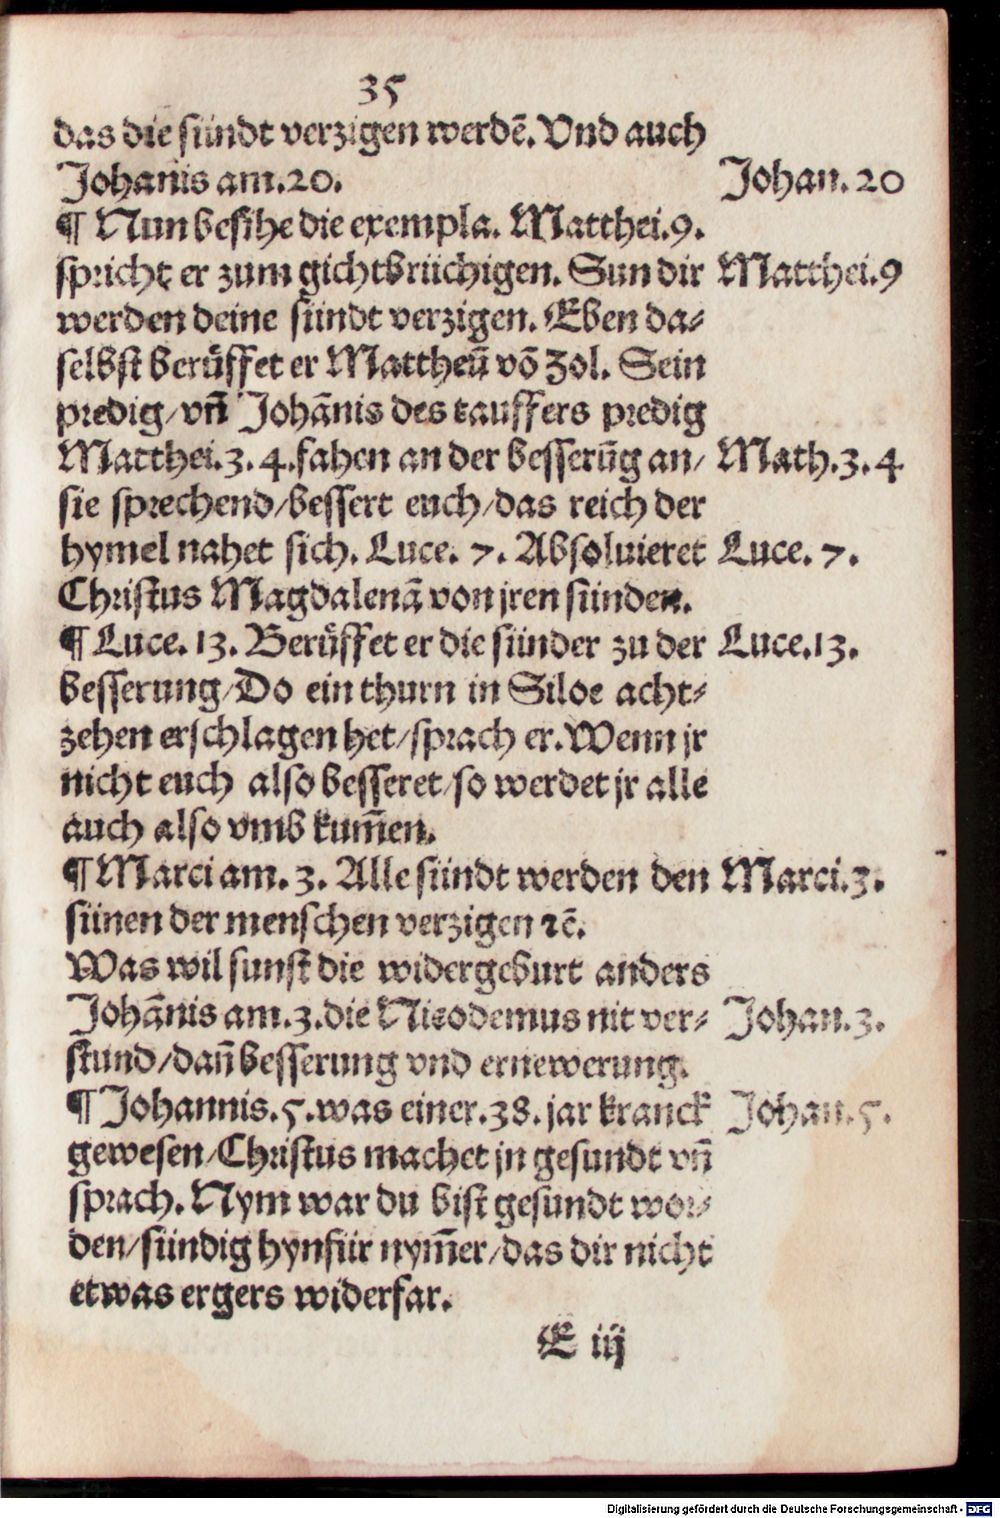 35
das die sündt verzigen werdē. Vnd auch
Johanis am.20. Johan.20
¶ Nun besihe die exempla. Matthei.9.
spricht er zum gichtbrüchigen. Sun dir Matthei.9
werden deine sündt verzigen. Eben da⸗
selbst berüffet er Mattheū vō Zol. Sein
predig/vñ Johānis des tauffers predig
Matthei.3.4.fahen an der besserūg an/ Math.3.4
sie sprechend/bessert euch/das reich der
hymel nahet sich. Luce. 7. Absoluieret Luce. 7.
Christus Magdalenā von jren sünden.
¶ Luce. 13. Berüffet er die sünder zu der Luce.13.
besserung/Do ein thurn in Siloe acht⸗
zehen erschlagen het/sprach er. Wenn jr
nicht euch also besseret/so werdet jr alle
auch also vmb kum̄en.
¶ Marci am. 3. Alle sündt werden den Marci.3.
sünen der menschen verzigen ⁊c̄.
Was wil sunst die widergeburt anders
Johānis am.3.die Nicodemus nit ver⸗ Johan.3.
stund/dañ besserung vnd ernewerung.
¶ Johannis.5.was einer.38.jar kranck Johan.5.
gewesen/Christus machet jn gesundt vñ
sprach. Nym war du bist gesundt wor⸗
den/sündig hynfür nym̄er/das dir nicht
etwas ergers widerfar.
E iij
Digitalisierung gefördert durch die Deutsche Forschungsgemeinschaft - DFG